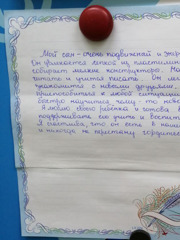 Мой сын - очень подвижный и
Он увлекается лепкой из пластилина
собирает мелкие конструктора.
читать и учится писать. Он
знакомится с новыми друзьями,
приспособиться к любой ситуации
быстро научится чему-то
Я люблю своего ребёнка и готова
поддерживать его, учить и
Я счастлива, что он есть в
и никогда не перестану гордиться